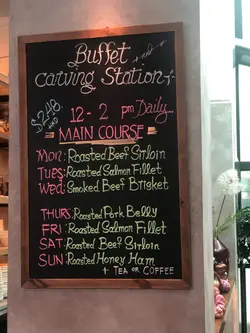 Buffet
Carving Station
12 - 2 pm Daily
MAIN COURSE
MON: Roasted Beef Sirloin
TUES: Roasted Salmon Fillet
WED: Smoked Beef Brisket
THURS: Roasted Pork Belly
FRI: Roasted Salmon Fillet
SAT: Roasted Beef Sirloin
SUN: Roasted Honey Ham
+ TEA OR COFFEE